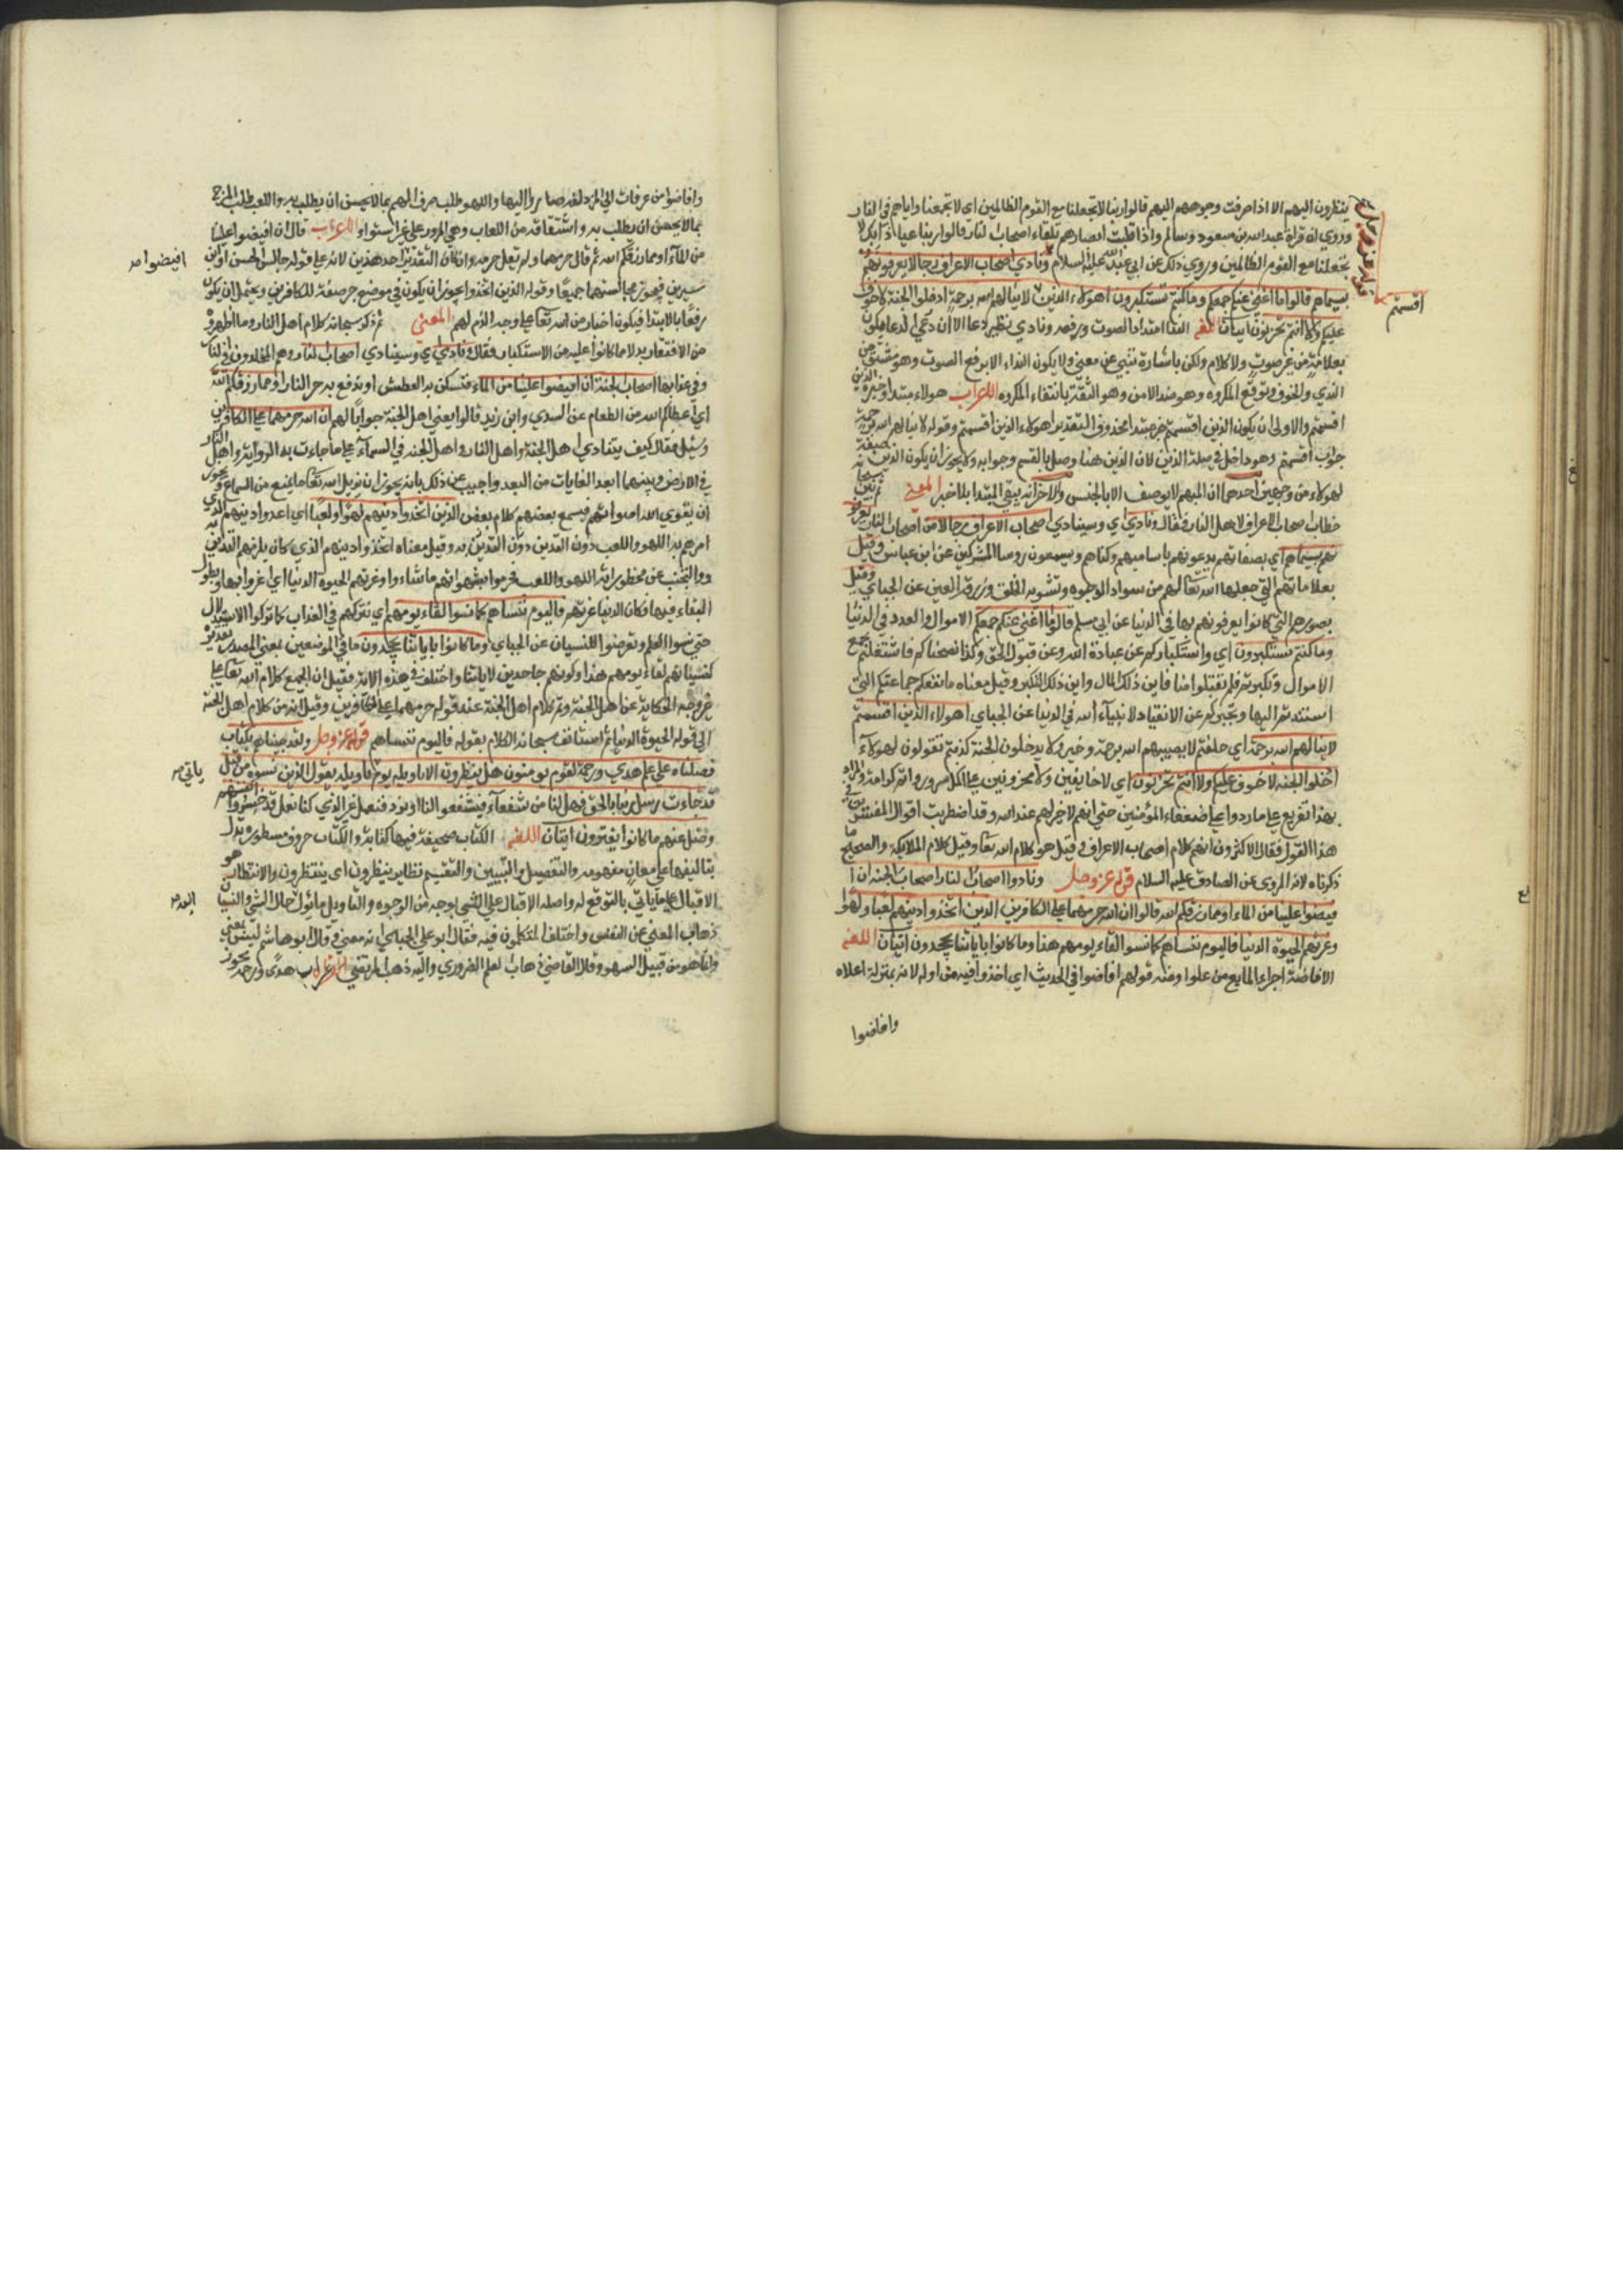 ينظرون اليهم الا اذا صرفت وجوههم اليهم قالوا ربنا لا تجعلنا مع القوم الظالمين اي لا تجمعنا واياهم في النار
وروي ان قراة عبدالله بن مسعود وسالم واذا قلبت ابصارهم تلقاء اصحاب النار قالوا ربنا عياذا بك لا
تجعلنا مع القوم الظالمين وروي ذلك عن ابي عبد الله عليه السلام ونادي اصحاب الاعراف رجالا يعرفونهم
قوله عز وجل
بسيماهم قالوا ما اغني عنكم جمعكم وما كنتم تستكبرون اهولاء الذين لا ينالهم الله برحمة ادخلوا الجنة لا خوف
اقسمتم
عليكم ولا انتم تحزنون ايتان اللغة الندا امتداد الصوت ورفعه ونادي نظير دعا الا ان دعي الدعا يكون
بعلامة من غير صوت ولا كلام ولكن باشارة تنبي عن معني ولا يكون النداء الا برفع الصوت وهو مشتق من
الندي والخوف توقع المكروه وهو ضد الامن وهو الثقة بانتفاء المكروه الاعراب هولاء مبتدا وخبره الذين
اقسمتم والاولي ان يكون الذين اقسمتم خبر مبتدا محذوف التقدير اهولاء الذين اقسمتم وقوله لا ينالهم الله برحمة
جواب اقسمتم وهو داخل في صلة الذين لان الذين هنا وصل بالقسم وجوابه ولا يجوز ان يكون الذين صفة
لهولاء من وجهين احدهما ان المبهم لا يوصف الا بالجنس والاخر انه يبقي المبتدا بلا خبر المعني ثم بين سبحانه
خطاب اصحاب الاعراف لاهل النار فقال ونادي اي وسينادي اصحاب الاعراف رجالا من اصحاب النار يعرفو
نهم بسيماهم اي بصفاتهم يدعونهم باساميهم وكناهم ويسمعون روسا المشركين عن ابن عباس وقيل
بعلاماتهم التي جعلها الله تعالي لهم من سواد الوجوه وتشويه الخلق وزرقة العين عن الجبايي وقيل
بصورهم التي كانوا يعرفونهم بها في الدنيا عن ابي مسلم قالوا ما اغني عنكم جمعكم الاموال والعدد في الدنيا
وما كنتم تستكبرون اي واستكباركم عن عبادة الله وعن قبول الحق وكنا نصحناكم فاشتغلتم بجمع
الاموال وتكبرتم فلم تقبلوا منا فاين ذلك المال واين ذلك التكبر وقيل معناه ما نفعكم جماعتكم التي
استندتم اليها وتجبركم عن الانقياد لانبياء الله في الدنيا عن الجبايي اهولاء الذين اقسمتم
لا ينالهم الله برحمة اي حلفتم لا يصيبهم الله برحمة وخير ولا يدخلون الجنة كذبتم تقولون لهولاء
ادخلوا الجنه لا خوف عليكم ولا انتم تحزنون اي لا خايفين ولا محزونين علي اكمل سرور واتم كرامة والمراد
بهذا تقريع علي ما زدروا علي ضعفاء المؤمنين حتي انهم لا خير لهم عند الله وقد اضطربت اقوال المفسرين في
هذا القول فقال الاكثرون انهم كلام اصحاب الاعراف وقيل هو كلام الله تعالي وقيل كلام الملايكة والصحيح ما
ذكرناه لانه المروي عن الصادق عليه السلام قوله عز وجل ونادوا اصحاب النار اصحاب الجنه ان ا
فيضوا علينا من الماء او مما رزقكم الله قالوا ان الله حرمهما علي الكافرين الذين اتخذوا دينهم لعبا ولهوا
وغرتهم الحيوة الدنيا فاليوم ننساهم كما نسوا لقاء يومهم هذا وما كانوا باياتنا يجحدون ايتان اللغة
الافاضة اجراء المايع من علو ومنه قولهم افاضوا في الحديث اي اخذوا فيه من اوله لانه بمنزلة اعلاه
وافاضوا
وافاضوا من عرفات الي المزدلفه صاروا اليها واللهو طلب صرف الهم بما لا يحسن ان يطلب به واللعب طلب المزح
بما لا يحسن ان يطلب به واشتقاقه من اللعاب وهو المرور علي غير استواء الاعراب قال ان افيضوا علينا
افيضوا
من الماء او مما رزقكم الله ثم قال حرمهما ولم يقل حرمه وان كان التقدير احد هذين لانه علي قوله جالس الحسن او ابن
سيرين فيجوز مجالستهما جميعا وقوله الذين اتخذوا يجوز ان يكون في موضع جر صفة للكافرين ويحتمل ان يكون
رفعا بالابتدا فيكون اخبارا من الله تعالي علي وجه الذم لهم المعني ثم ذكر سبحانه كلام اهل النار وما اظهروه
من الافتقار بدلا مما كانوا عليه من الاستكبار فقال ونادي اي وسينادي اصحاب النار وهم المخلدون في النار
وفي عذابها اصحاب الجنة ان افيضوا علينا من الماء نسكن به العطش او ندفع به حر النار او مما رزقكم الله
اي اعطاكم الله من الطعام عن السدي وابن زيد قالوا يعني اهل الجنة جوابا لهم ان الله حرمهما علي الكافرين
وسئل فقال كيف يتنادي اهل الجنة واهل النار واهل الجنه في السماء علي ما جاءت به الرواية واهل النار
في الارض وبينهما ابعد الغايات من البعد واجيب عن ذلك بانه يجوز ان يزيل الله تعالي ما يمنع من السماع ويجوز
ان يقوي الله اصواتهم فيسمع بعضهم كلام بعض الذين اتخذوا دينهم لهوا ولعبا اي اعدوا دينهم الذي
امرهم به اللهو واللعب دون التدين به وقيل معناه اتخذوا دينهم الذي كان يلزمهم التدين به
والتجنب عن محظوراته اللهو واللعب فحرموا بشهواتهم ما شاءوا وغرتهم الحيوة الدنيا اي اغتروا بها وبطول
البقاء فيها فكان الدنيا غرتهم فاليوم ننساهم كما نسوا لقاء يومهم اي نتركهم في العذاب كما تركوا الاستدلال
حتي نسوا العلم وتعرضوا للنسيان عن الجبايي وما كانوا باياتنا يجحدون ما في الموضعين بمعني المصدر تقديره
كنسيانهم لقاء يومهم هذا وكونهم جاحدين لاياتنا واختلف في هذه الاية فقيل ان الجميع كلام الله تعالي علي
غير وجه الحكاية عن اهل الجنة وتم كلام اهل الجنة عند قوله حرمهما علي الكافرين وقيل انه من كلام اهل الجنة
الي قوله الحيوة الدنيا ثم استانف سبحانه الكلام بقوله فاليوم ننساهم قوله عز وجل ولقد جيناهم بكتاب
فصلناه علي علم هدي ورحمة لقوم يومنون هل ينظرون الا تاويله يوم تاويله يقول الذين نسوه من قبل
ياتي
قد جاءت رسل ربنا بالحق فهل لنا من شفعاء فيشفعوا لنا او نرد فنعمل غير الذي كنا نعمل قد خسروا انفسهم
وضل عنهم ما كانوا يفترون ايتان اللغة الكتاب صحيفة فيها كتابة والكتاب حروف مسطورة تدل
بتاليفها علي معان مفهومه والتفصيل والتبيين والتقسيم نظاير ينظرون اي ينتظرون والانتظار هو
الاقبال علي ما ياتي بالتوقع له واصله الاقبال علي الشي بوجه من الوجوه والتاويل ما يؤل حال الشي والنسيان
ذهاب المعني عن النفس واختلف المتكلمون فيه فقال ابو علي الجبايي انه معني وقال ابو هاشم ليس بمعني
وانما هو من قبيل السهو وقال القاضي ذهاب العلم الضروري واليه ذهب المرتضي الاعراب هدي ورحمة يجوز